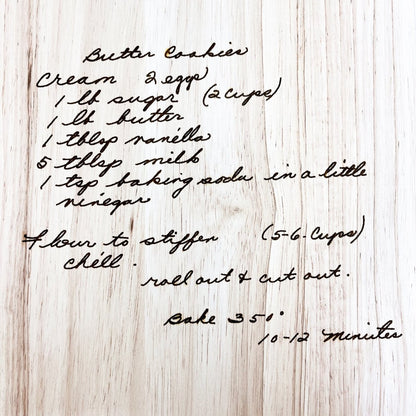 Butter Cookies
Cream 2 eggs
1 lb sugar (2 cups)
1 lb butter
1 tblsp vanilla
5 tblsp milk
1 tsp baking soda in a little
vinegar
Flour to stiffen (5-6-Cups)
chill.
roll out & cut out.
Bake 350°
10-12 Minutes